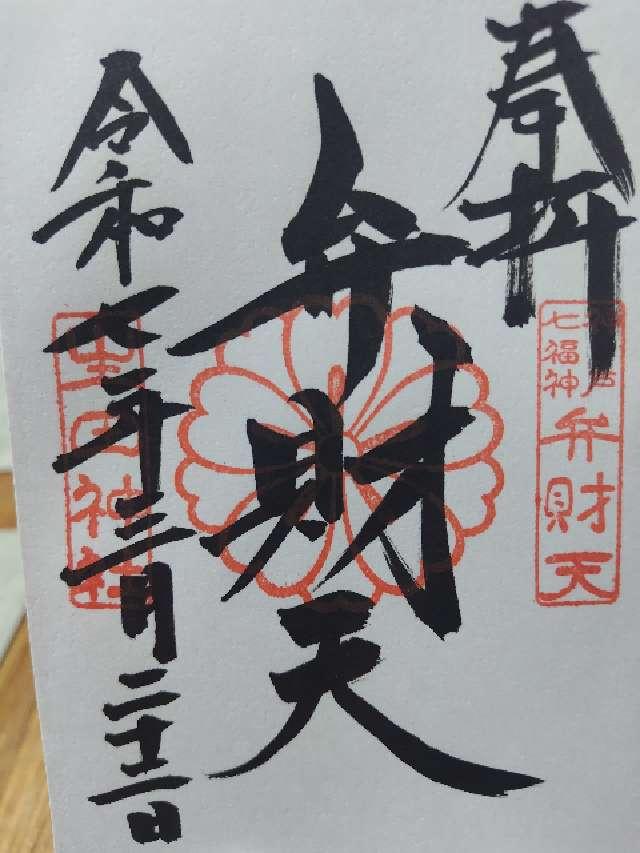 奉拝
神戸
七福神
弁財天
弁財天
令和七年三月二十二日
生田神社